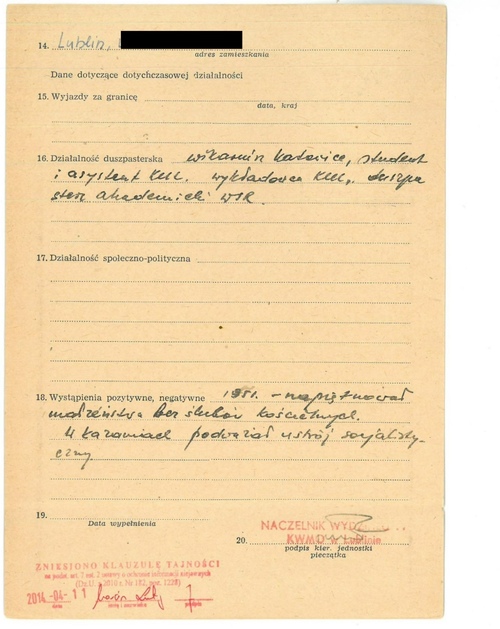 14. Lublin,
adres zamieszkania
Dane dotyczące dotychczasowej działalności
15. Wyjazdy za granicę
data, kraj
16. Działalność duszpasterska wikariusz Katowice, student
i asystent KUL. wykładowca KUL, duszpa
sterz akademicki WSR.
17. Działalność społeczno-polityczna
18. Wystąpienia pozytywne, negatywne 1951. - napiętnował
małżeństwa bez ślubów kościelnych.
W kazaniach podważał ustrój socjalisty-
czny
19.
Data wypełnienia
NACZELNIK
KWMO w Lublinie
20.
podpis kier. jednostki
pieczątka
ZNIESIONO KLAUZULĘ TAJNOŚCI
na podst. art. 7 ust. 2 ustawy o ochronie informacji niejawnych
(Dz.U. z 2010 r. Nr 182, poz. 1228)
2014 -04- 11
data imię i nazwisko podpis